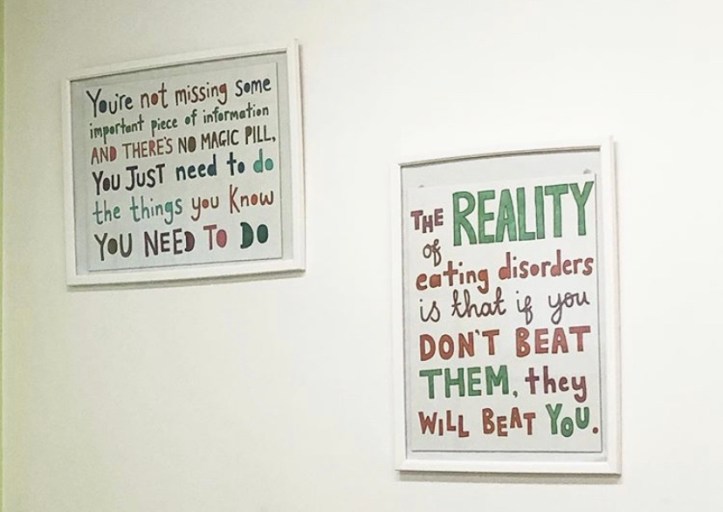 You're not missing some
important piece of information
AND THERE'S NO MAGIC PILL,
YOU JUST need to do
the things you know
YOU NEED TO DO
THE REALITY
of
eating disorders
is that if you
DON'T BEAT
THEM, they
WILL BEAT YOU.